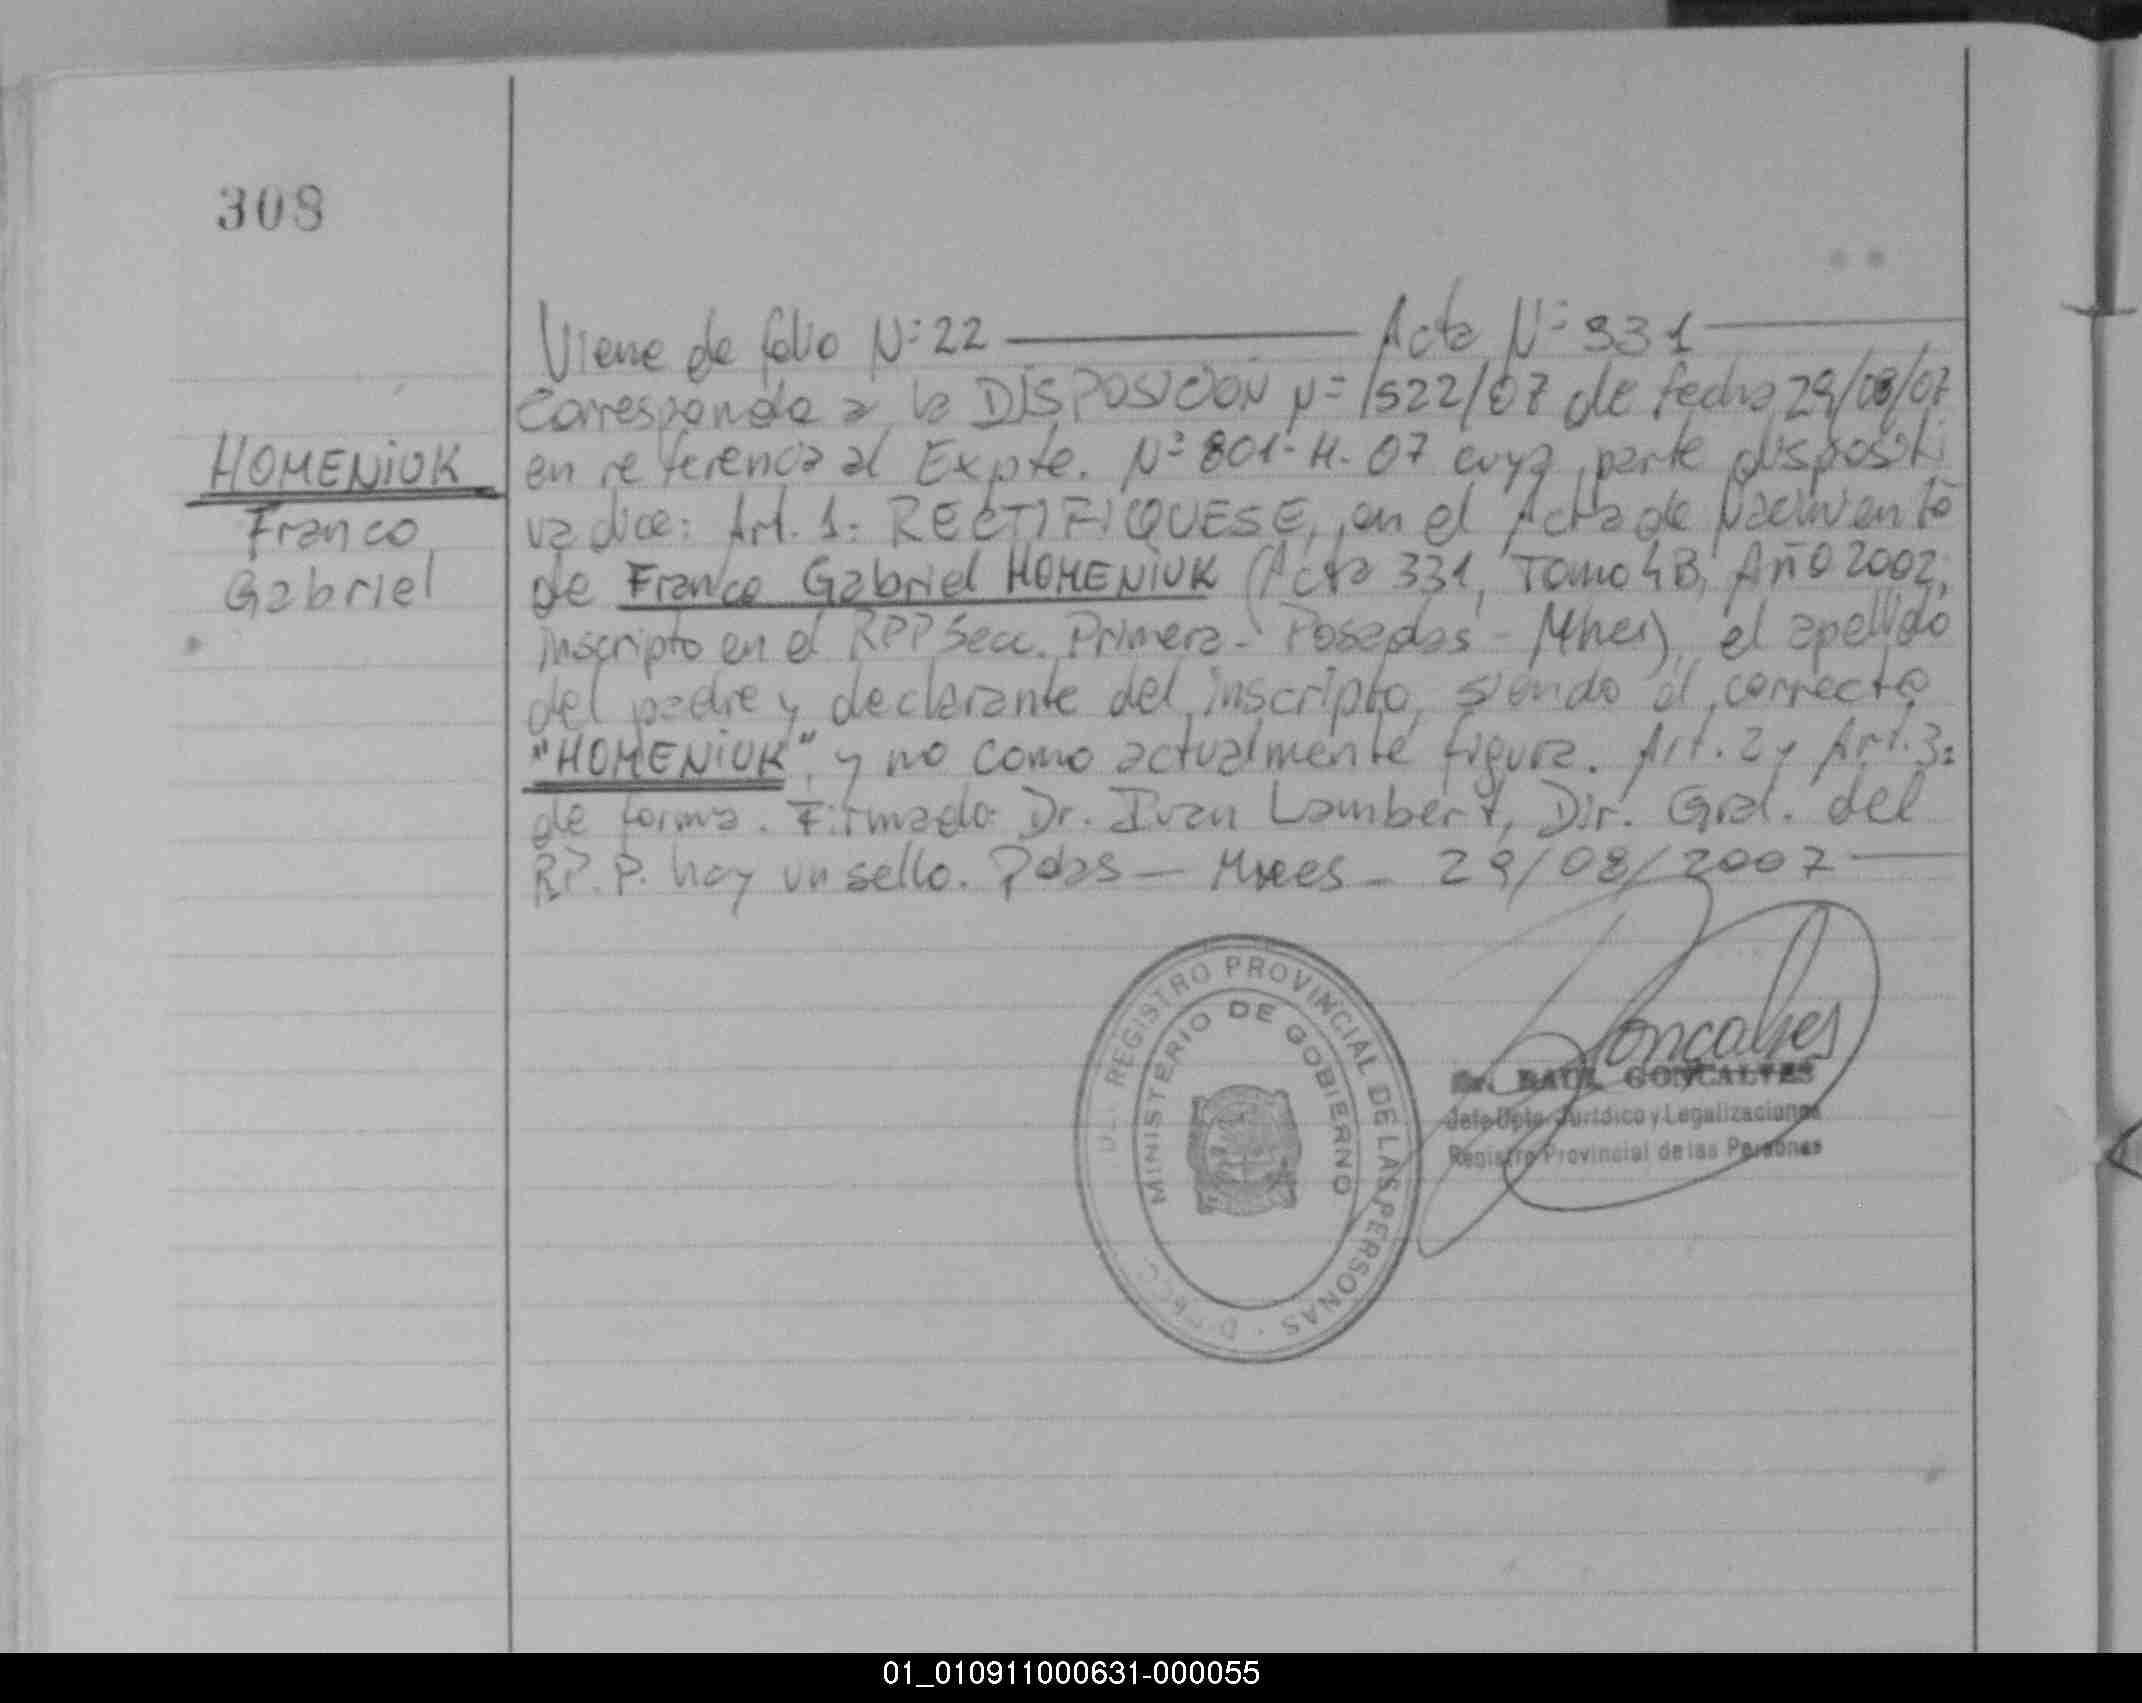 308
Viene de folio Nº 22 ——— Acta Nº 331 ———
Corresponde a la DISPOSICION Nº 1522/07 de fecha 29/08/07
HOMENIUK
en referencia al Expte. Nº 801-H-07 cuya parte dispositi
Franco
va dice: Art. 1: RECTIFIQUESE, en el Acta de Nacimiento
Gabriel
de Franco Gabriel HOMENIUK (Acta 331, Tomo 4B, Año 2002,
inscripto en el RPP Secc. Primera - Posadas - Mnes), el apellido
del padre y declarante del inscripto, siendo el correcto
"HOMENIUK", y no como actualmente figura. Art. 2 y Art. 3:
de forma. Firmado: Dr. Ivan Lambert, Dir. Gral. del
RP.P. hay un sello. Pdas — Mnes — 29/08/2007 ———
REGISTRO PROVINCIAL DE LAS PERSONAS
MINISTERIO DE GOBIERNO
Goncalves
Dr. RAUL GONCALVES
Jefe Dpto. Jurídico y Legalizaciones
Registro Provincial de las Personas
01_010911000631-000055